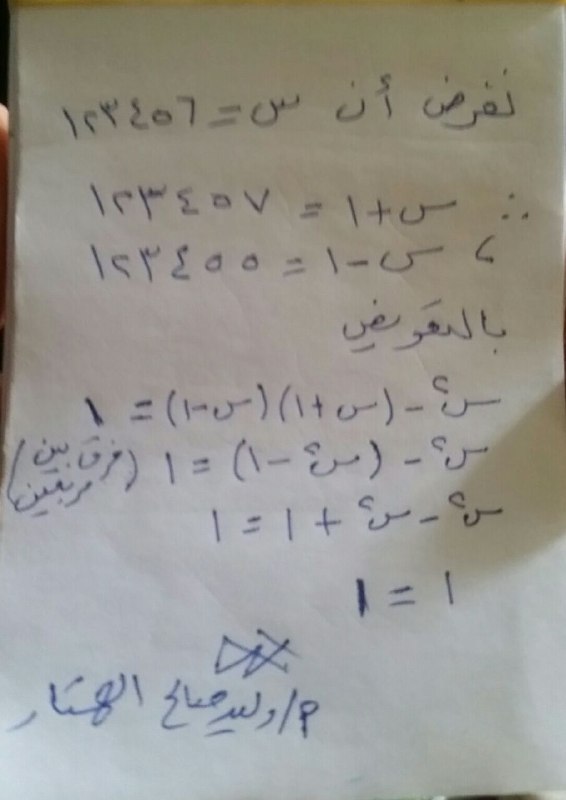 نفرض أن س = ١٢٣٤٥٦
∴ س+١ = ١٢٣٤٥٧
، س-١ = ١٢٣٤٥٥
بالتعويض
س٢ - (س+١)(س-١) = ١
س٢ - (س٢ - ١) = ١ (فرق بين مربعين)
س٢ - س٢ + ١ = ١
١ = ١
م/وليد صالح الهتار